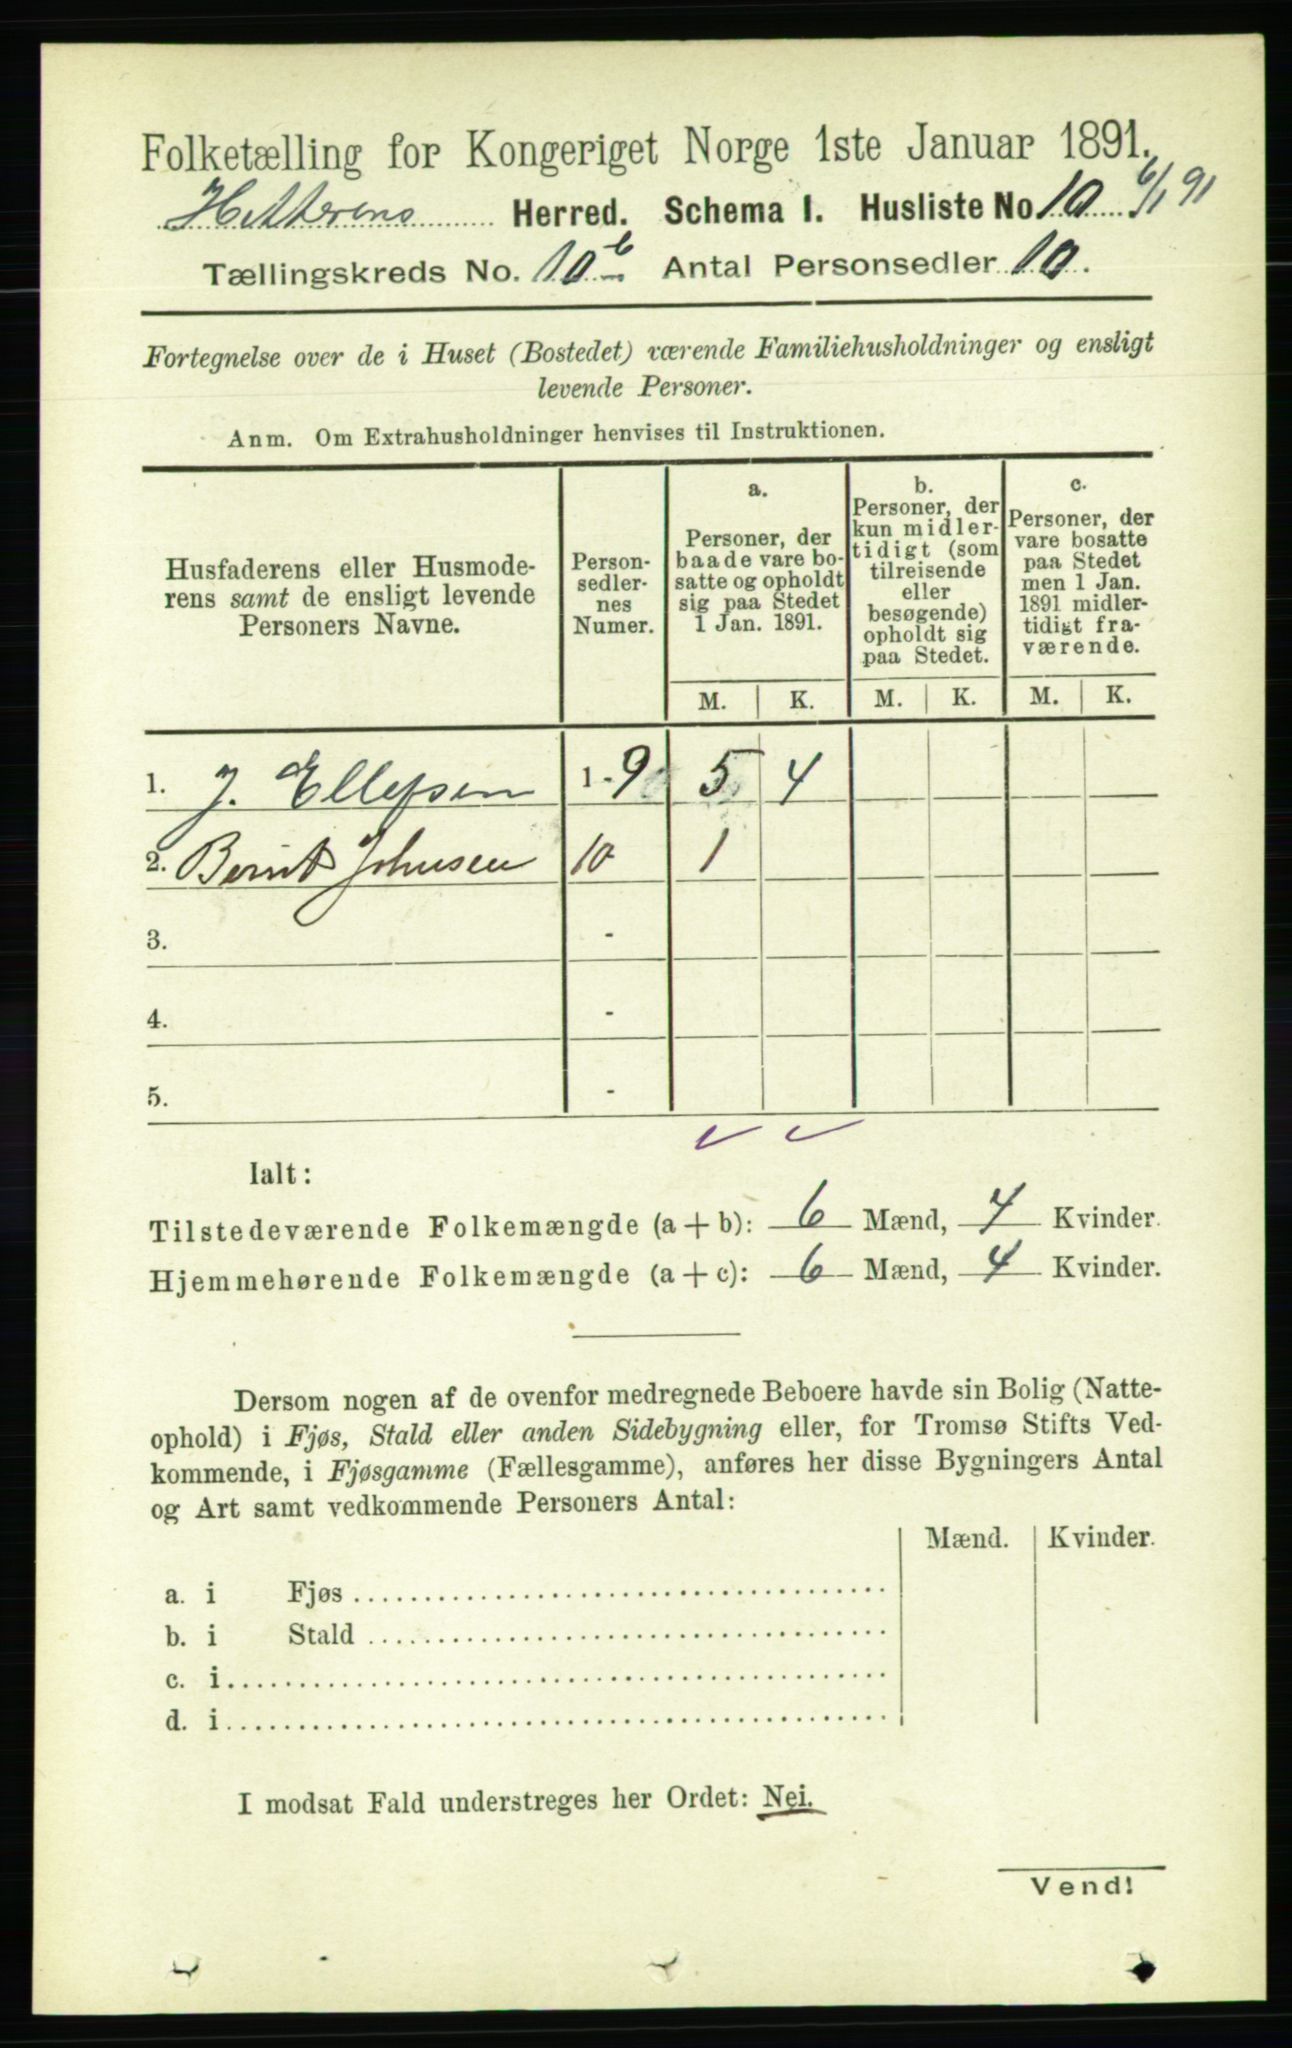 Folketælling for Kongeriget Norge 1ste Januar 1891.
Hitterens Herred. Schema I. Husliste No 10 6/1 91
Tællingskreds No. 10 b Antal Personsedler 10.
Fortegnelse over de i Huset (Bostedet) værende Familiehusholdninger og ensligt
levende Personer.
Anm. Om Extrahusholdninger henvises til Instruktionen.
Husfaderens eller Husmode-
rens samt de ensligt levende
Personers Navne.
Person-
sedler-
nes
Numer.
a.
Personer, der
baade vare bo-
satte og opholdt
sig paa Stedet
1 Jan. 1891.
b.
Personer, der
kun midler-
tidigt (som
tilreisende
eller
besøgende)
opholdt sig
paa Stedet.
c.
Personer, der
vare bosatte
paa Stedet
men 1 Jan.
1891 midler-
tidigt fra-
værende.
M. K. M. K. M. K.
1. J. Ellefsen 1 - 9 5 4
2. Bernt Johnsen 10 1
3. -
4. -
5. -
Ialt:
Tilstedeværende Folkemængde (a + b): 6 Mænd, 4 Kvinder.
Hjemmehørende Folkemængde (a + c): 6 Mænd, 4 Kvinder.
Dersom nogen af de ovenfor medregnede Beboere havde sin Bolig (Natte-
ophold) i Fjøs, Stald eller anden Sidebygning eller, for Tromsø Stifts Ved-
kommende, i Fjøsgamme (Fællesgamme), anføres her disse Bygningers Antal
og Art samt vedkommende Personers Antal:
Mænd. Kvinder.
a. i Fjøs
b. i Stald
c. i
d. i
I modsat Fald understreges her Ordet: Nei.
Vend!